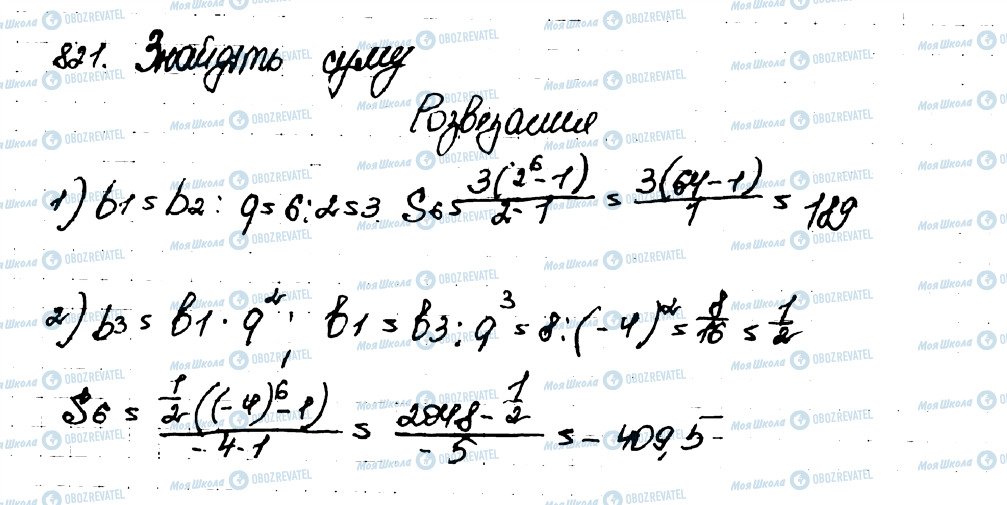 821. Знайдіть суму
Розвезання
1) b1 = b2 : q = 6 : 2 = 3. S6 = 3(2^6 - 1)/(2 - 1) = 3(64 - 1)/1 = 189
2) b3 = b1 · q^2; b1 = b3 : q^3 = 8 : (-4)^2 = 8/16 = 1/2
S6 = 1/2((-4)^6 - 1)/(-4 - 1) = (2048 - 1/2)/(-5) = -409,5